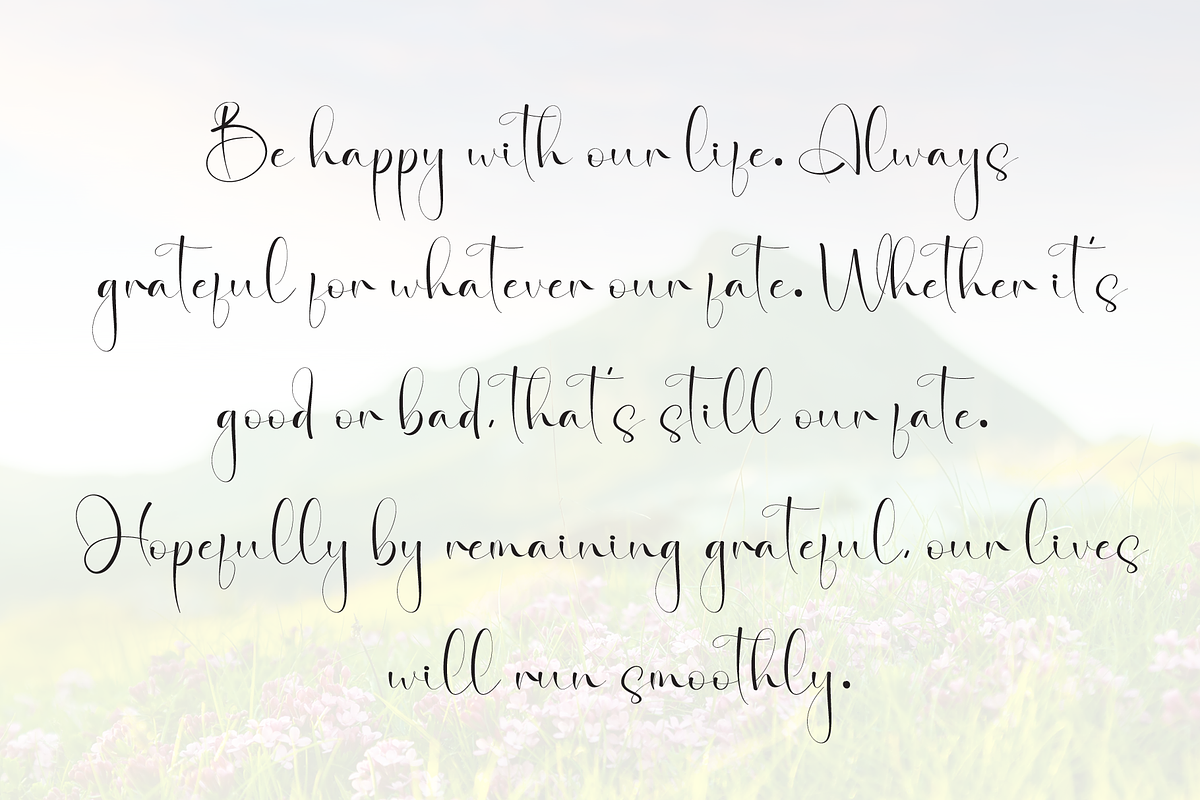 Be happy with our life. Always
grateful for whatever our fate. Whether it's
good or bad, that's still our fate.
Hopefully by remaining grateful, our lives
will run smoothly.